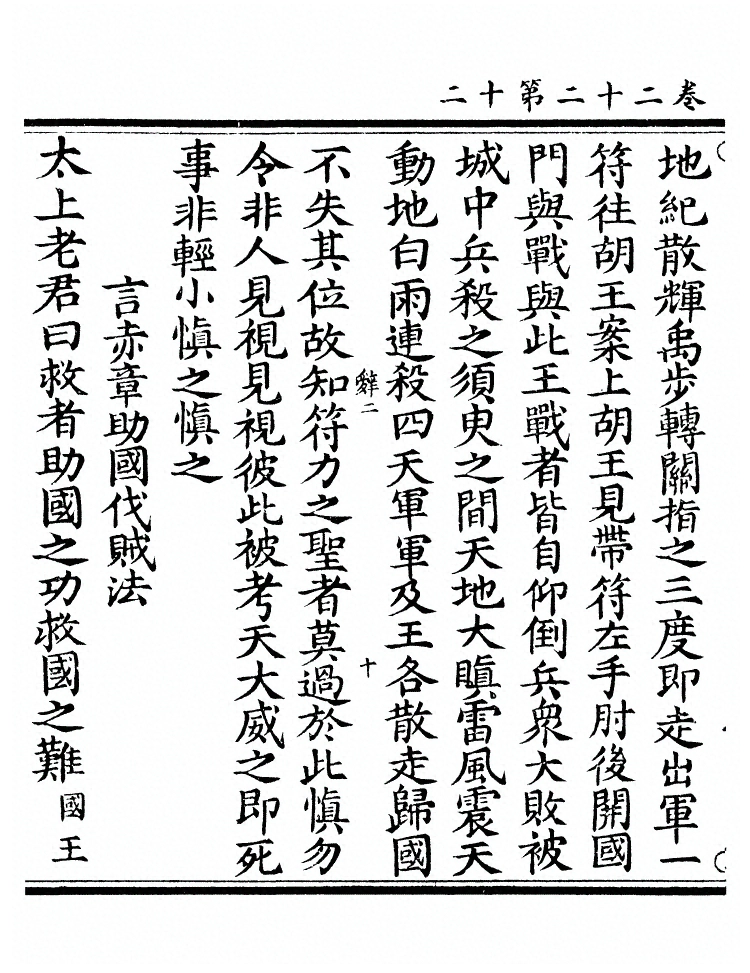 卷二十二第十二
地紀散輝禹步轉關指之三度即走出軍一
符往胡王案上胡王見帶符左手肘後開國
門與戰與此王戰者皆自仰倒兵衆大敗被
城中兵殺之須臾之間天地大瞋雷風震天
動地白雨連殺四天軍軍及王各散走歸國
辭二
十
不失其位故知符力之聖者莫過於此慎勿
令非人見視見視彼此被考天大威之即死
事非輕小慎之慎之
言赤章助國伐賊法
太上老君曰救者助國之功救國之難國王